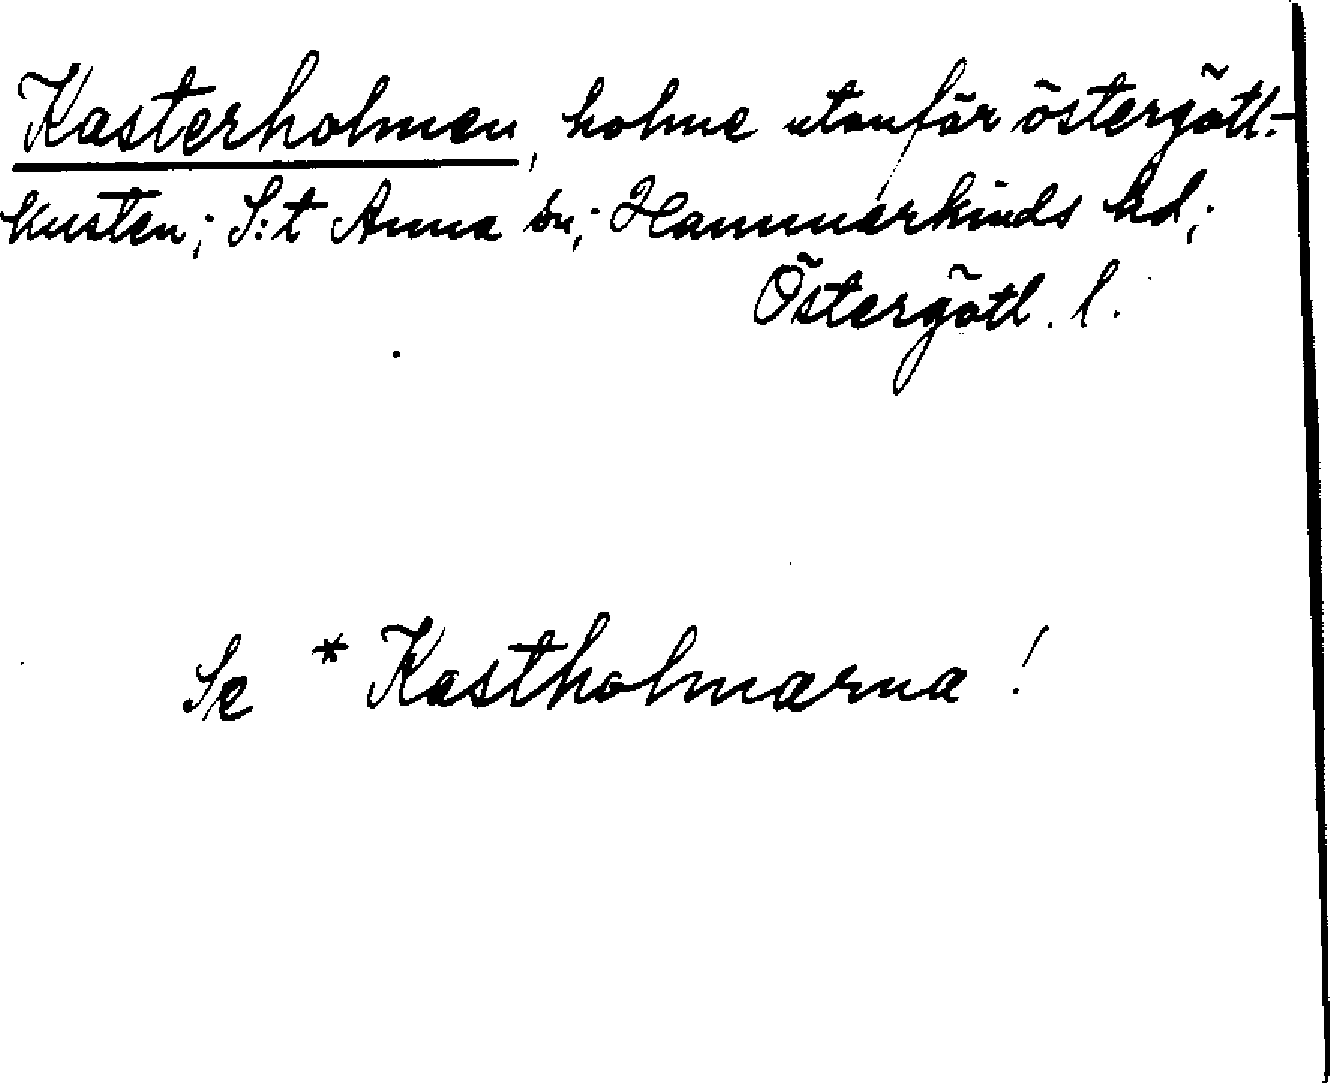 Kasterholmen, holme utanför östergötl.-
kusten; S:t Anna sn; Hammarkinds hd;
Östergötl. l.
Se * Kastholmarna!